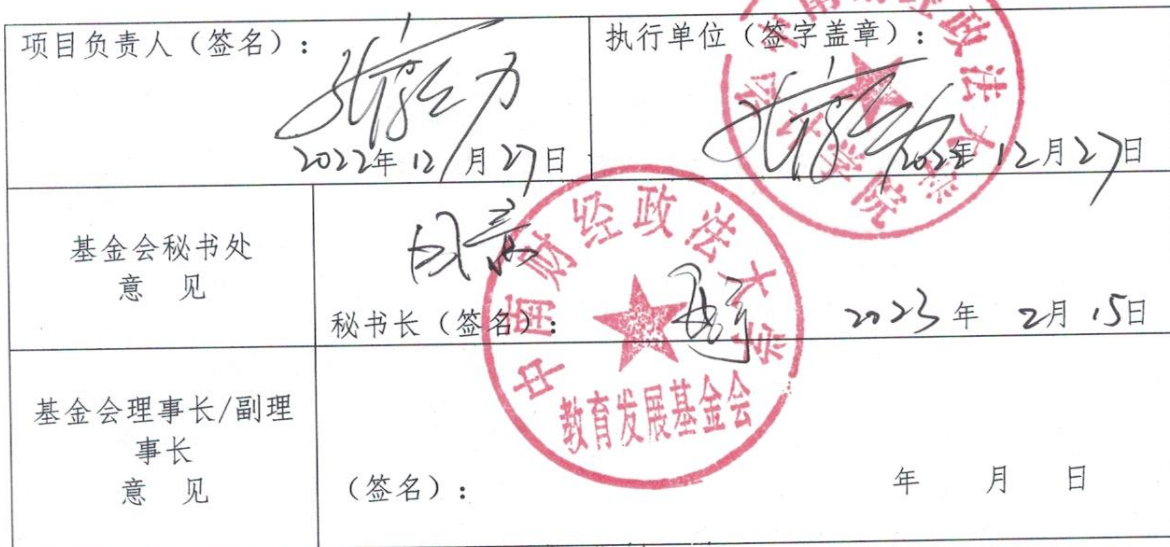 项目负责人（签名）：
2022年 12月 27日
执行单位（签字盖章）：
2022年 12月 27日
南财经政法大学
会计学院
基金会秘书处
意 见
同意
秘书长（签名）：
2023 年 2月 15日
中南财经政法大学
教育发展基金会
基金会理事长/副理
事长
意 见
（签名）：
年 月 日